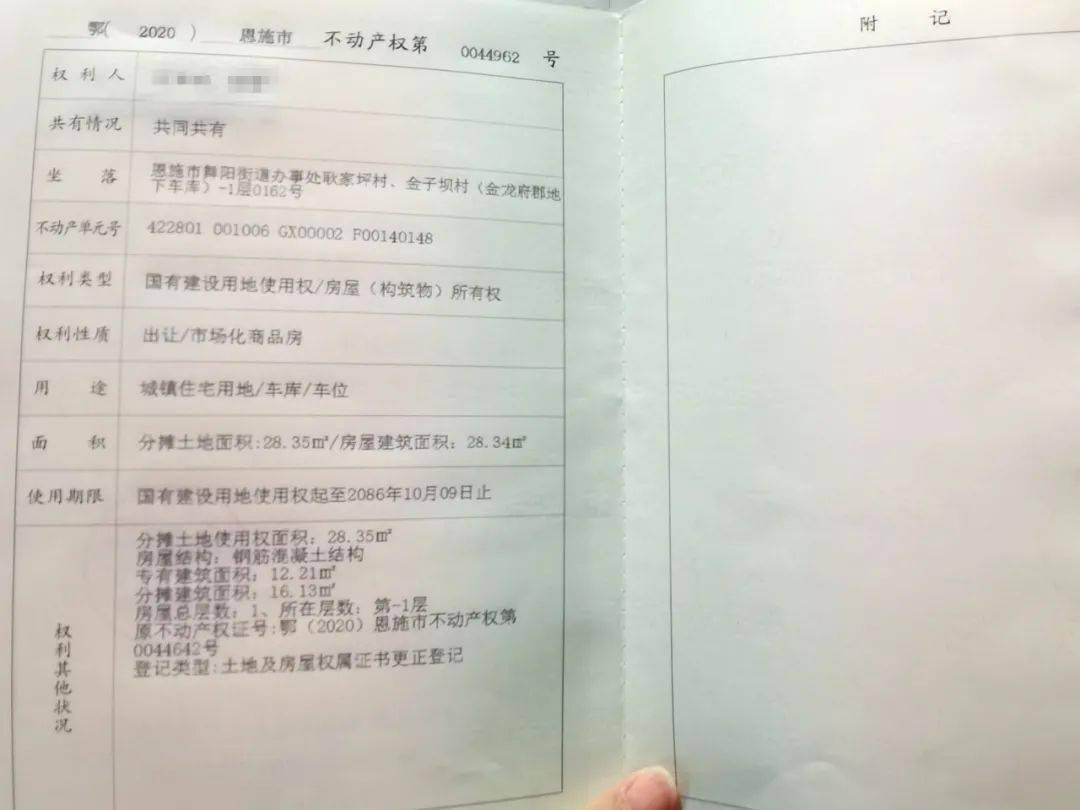 鄂( 2020 ) 恩施市 不动产权第 0044962 号
附 记
权 利 人
共有情况 共同共有
坐 落 恩施市舞阳街道办事处耿家坪村、金子坝村（金龙府郡地
下车库）-1层0162号
不动产单元号 422801 001006 GX00002 F00140148
权利类型 国有建设用地使用权/房屋（构筑物）所有权
权利性质 出让/市场化商品房
用 途 城镇住宅用地/车库/车位
面 积 分摊土地面积:28.35㎡/房屋建筑面积：28.34㎡
使用期限 国有建设用地使用权起至2086年10月09日止
权利其他状况
分摊土地使用权面积：28.35㎡
房屋结构：钢筋混凝土结构
专有建筑面积：12.21㎡
分摊建筑面积：16.13㎡
房屋总层数：1、所在层数：第-1层
原不动产权证号:鄂（2020）恩施市不动产权第
0044642号
登记类型:土地及房屋权属证书更正登记